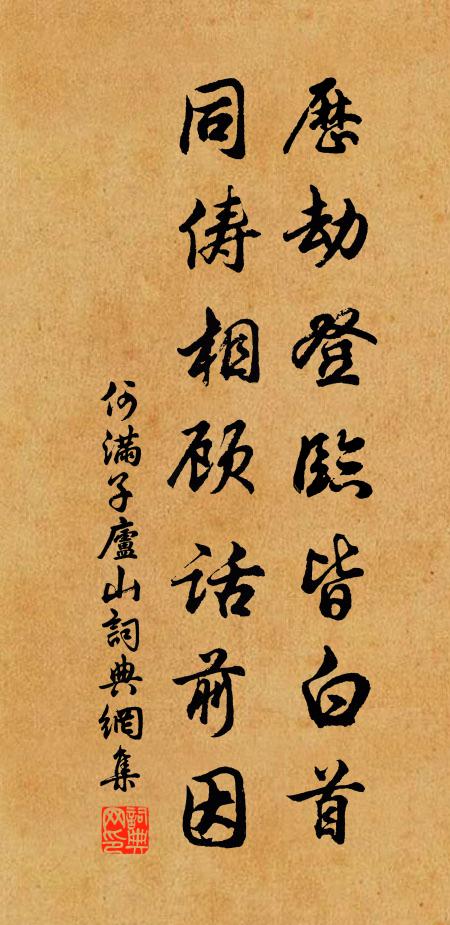 歷劫登臨皆白首
同儔相顧話前因
何滿子廬山詞典網集
詞典网印